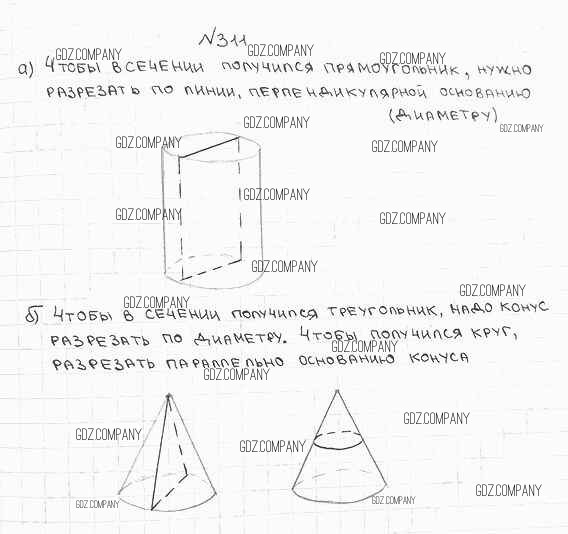 №311
GDZ.COMPANY GDZ.COMPANY GDZ.COMPANY
а) Чтобы в сечении получился прямоугольник, нужно
разрезать по линии, перпендикулярной основанию
(диаметру)
GDZ.COMPANY GDZ.COMPANY
GDZ.COMPANY GDZ.COMPANY
GDZ.COMPANY
GDZ.COMPANY GDZ.COMPANY
GDZ.COMPANY
GDZ.COMPANY
GDZ.COMPANY
б) Чтобы в сечении получился треугольник, надо конус
разрезать по диаметру. Чтобы получился круг,
GDZ.COMPANY
разрезать параллельно основанию конуса
GDZ.COMPANY
GDZ.COMPANY
GDZ.COMPANY GDZ.COMPANY
GDZ.COMPANY
GDZ.COMPANY GDZ.COMPANY